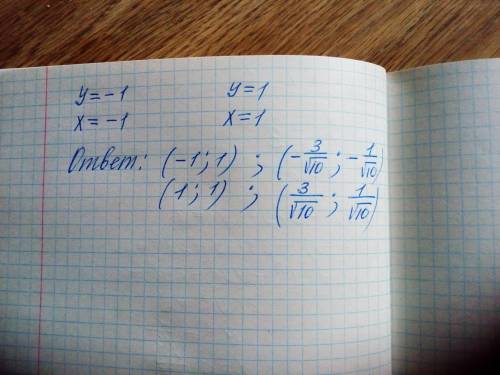 y = -1 y = 1
x = -1 x = 1
Ответ: (-1; 1) ; (-3/√10 ; -1/√10)
(1; 1) ; (3/√10 ; 1/√10)